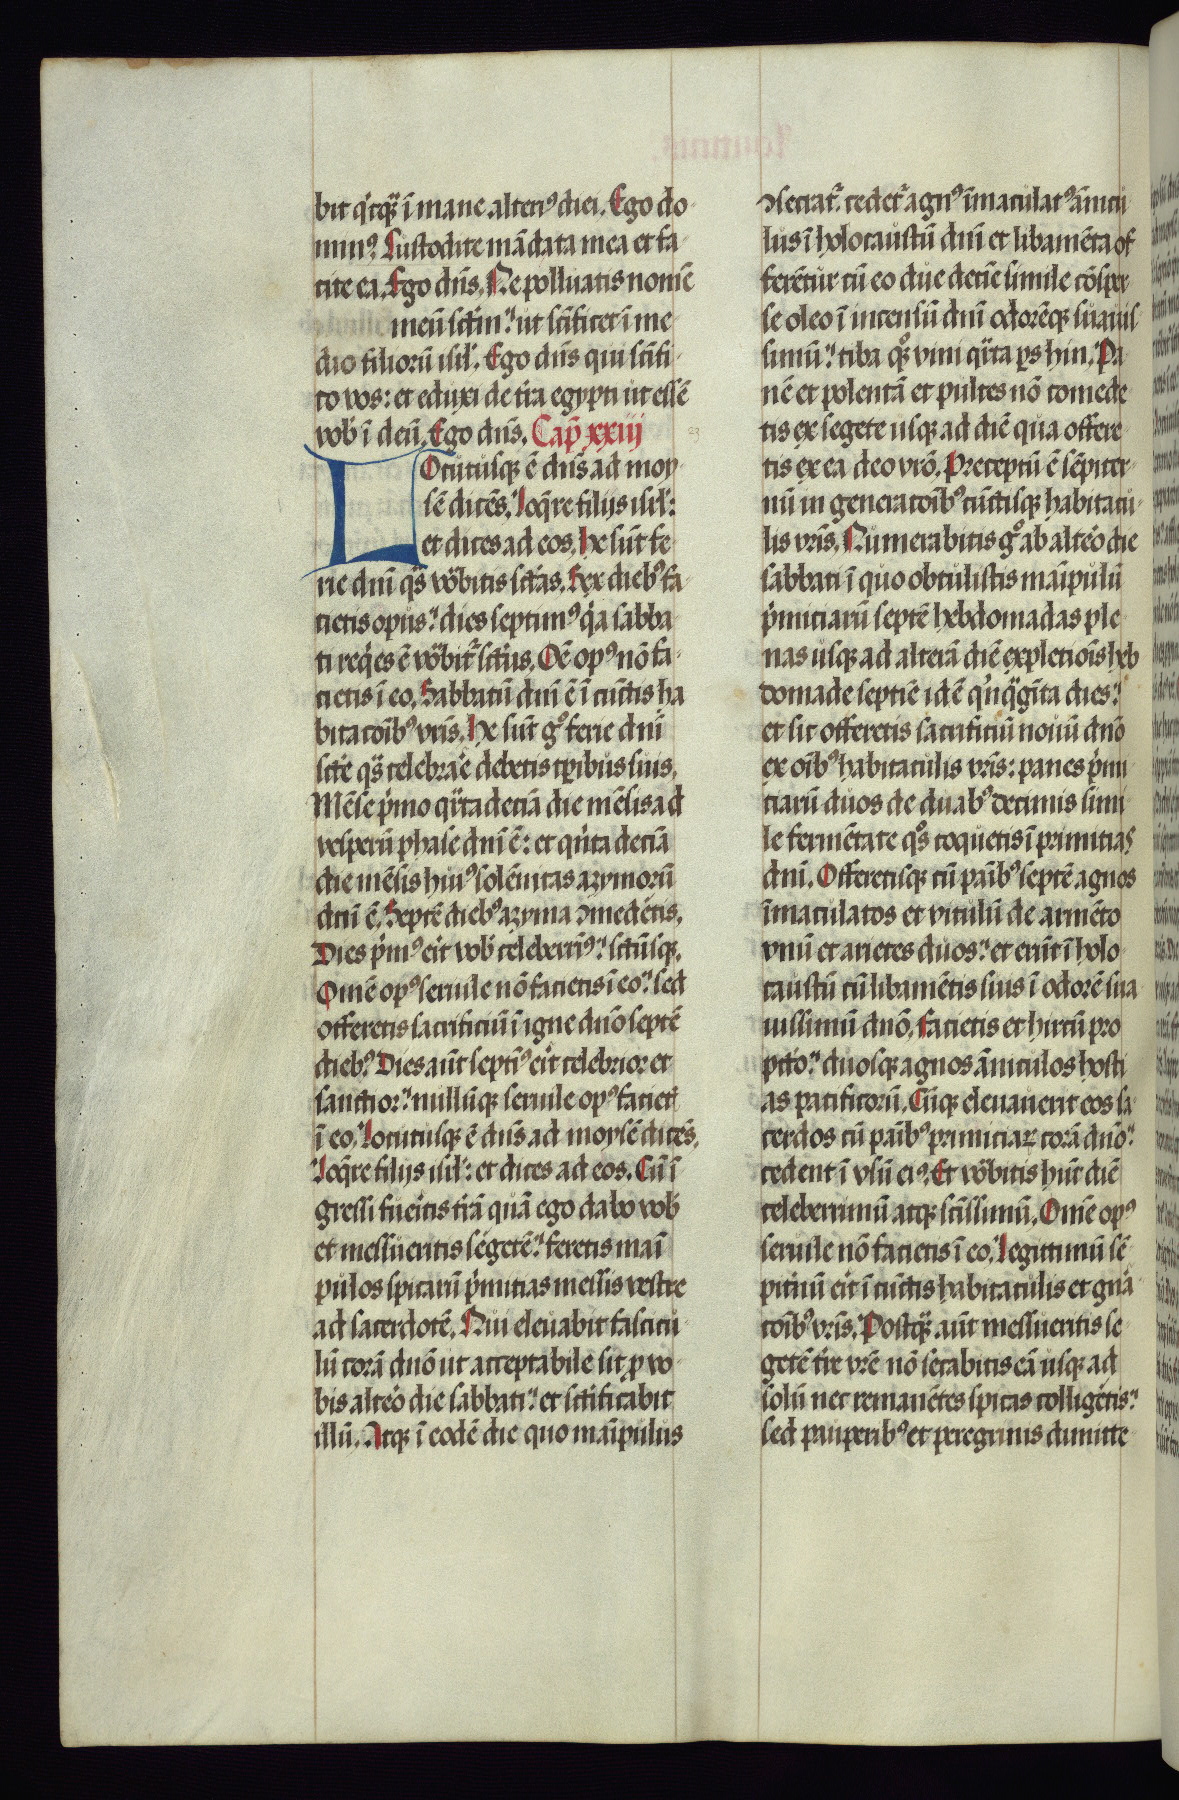 bit q'cq̃ ī mane alteri⁹ diei. Ego do
min⁹. Custodite mādata mea et fa
cite ea. Ego dñs. Ne polluatis nomē
meū sctm̄: ut sctificer ī me
dio filiorū isrl̃. Ego dñs qui sctifi
co vos: et eduxi de tr̄a egypti ut essē
vob̄ ī deū. Ego dñs. Cap̄ xxiij
Locutusq; ē dñs ad moy
sē dicēs. loq̄re filijs isrl̃:
et dices ad eos. He sūt fe
rie dnī q̄s vocabitis sctās. Sex dieb⁹ fa
cietis opus: dies septim⁹ q'a sabba
ti req'es ē vocabit̃ sctūs. Om̄e op⁹ nō fa
cietis ī eo. Sabbatū dnī ē ī cūctis ha
bitacōib⁹ vr̄is. He sūt gº ferie dnī
scte q̄s celebrare debetis tp̄ibus suis.
Mēse p'mo q̄rta decīa die mēsis ad
vesperū phase dnī ē: et q'nta decīa
die mēsis hui⁹ solēnitas azymorū
dnī ē. Septē dieb⁹ azyma ꝯmedetis.
Dies p'm⁹ erit vob̄ celeberrim⁹: sctūsq;.
Om̄e op⁹ seruile nō facietis ī eo: sed
offeretis sacrificiū ī igne dn̄o septē
dieb⁹. Dies aūt septim⁹ erit celebrior et
sanctior: nullūq; seruile op⁹ facietis
ī eo. Locutusq; ē dñs ad moysē dicēs.
Loq̄re filijs isrl̃: et dices ad eos. Cū ī
gressi fueritis tr̄ā quā ego dabo vob̄
et messueritis segetē: feretis maī
pulos spicarū p'mitias messis vestre
ad sacerdotē. Qui eleuabit fascicu
lū corā dn̄o ut acceptabile sit ꝓ vo
bis altero die sabbati: et sctificabit
illū. Atq; ī eodē die quo maīpulus
ꝯsecrat̃. cedet̃ agn⁹ īmaculat⁹ ānicu
lus ī holocaustū dnī et libamēta of
ferētur cū eo due decīe simile cōsper
se oleo ī incensū dnī odorēq; suauis
simū: liba q; vini q̄rta ps hin. Pa
nē et polentā et pultes nō comede
tis ex segete usq; ad diē qua offere
tis ex ea deo vr̄o. Preceptū ē sēpiter
nū in generacōib⁹ cūctisq; habitacu
lis vr̄is. Numerabitis gº ab altero die
sabbati ī quo obtulistis maīpulū
p'mitiarū septē hebdomadas ple
nas usq; ad alterā diē expletiōis heb
domade septīe idē q'nq̄gīta dies:
et sic offeretis sacrificiū nouū dn̄o
ex oīb⁹ habitaculis vr̄is: panes p'mi
ciarū duos de duab⁹ decimis simi
le fermētate q̊s coquetis ī primitias
dnī. Offeretisq; cū paīb⁹ septē agnos
īmaculatos et vitulū de armēto
vnū et arietes duos: et erūt ī holo
caustū cū libamētis suis ī odorē sua
uissimū dn̄o. Facietis et hircū pro
pctō: duosq; agnos āniculos hosti
as pacificorū. Cūq; eleuauerit eos sa
cerdos cū paīb⁹ primiciar̄ corā dn̄o:
cedent ī vsū ei⁹. Et vocabitis hūc diē
celeberrimū atq; sctissimū. Om̄e op⁹
seruile nō facietis ī eo. Legitimū sē
pit'nū erit ī cūctis habitaculis et gn̄a
cōib⁹ vr̄is. Postq̄ aūt messueritis se
getē tr̄e vr̄e nō secabitis eā usq; ad
solū nec remanētes spicas colligetis:
sed pauperib⁹ et peregrinis dimitte